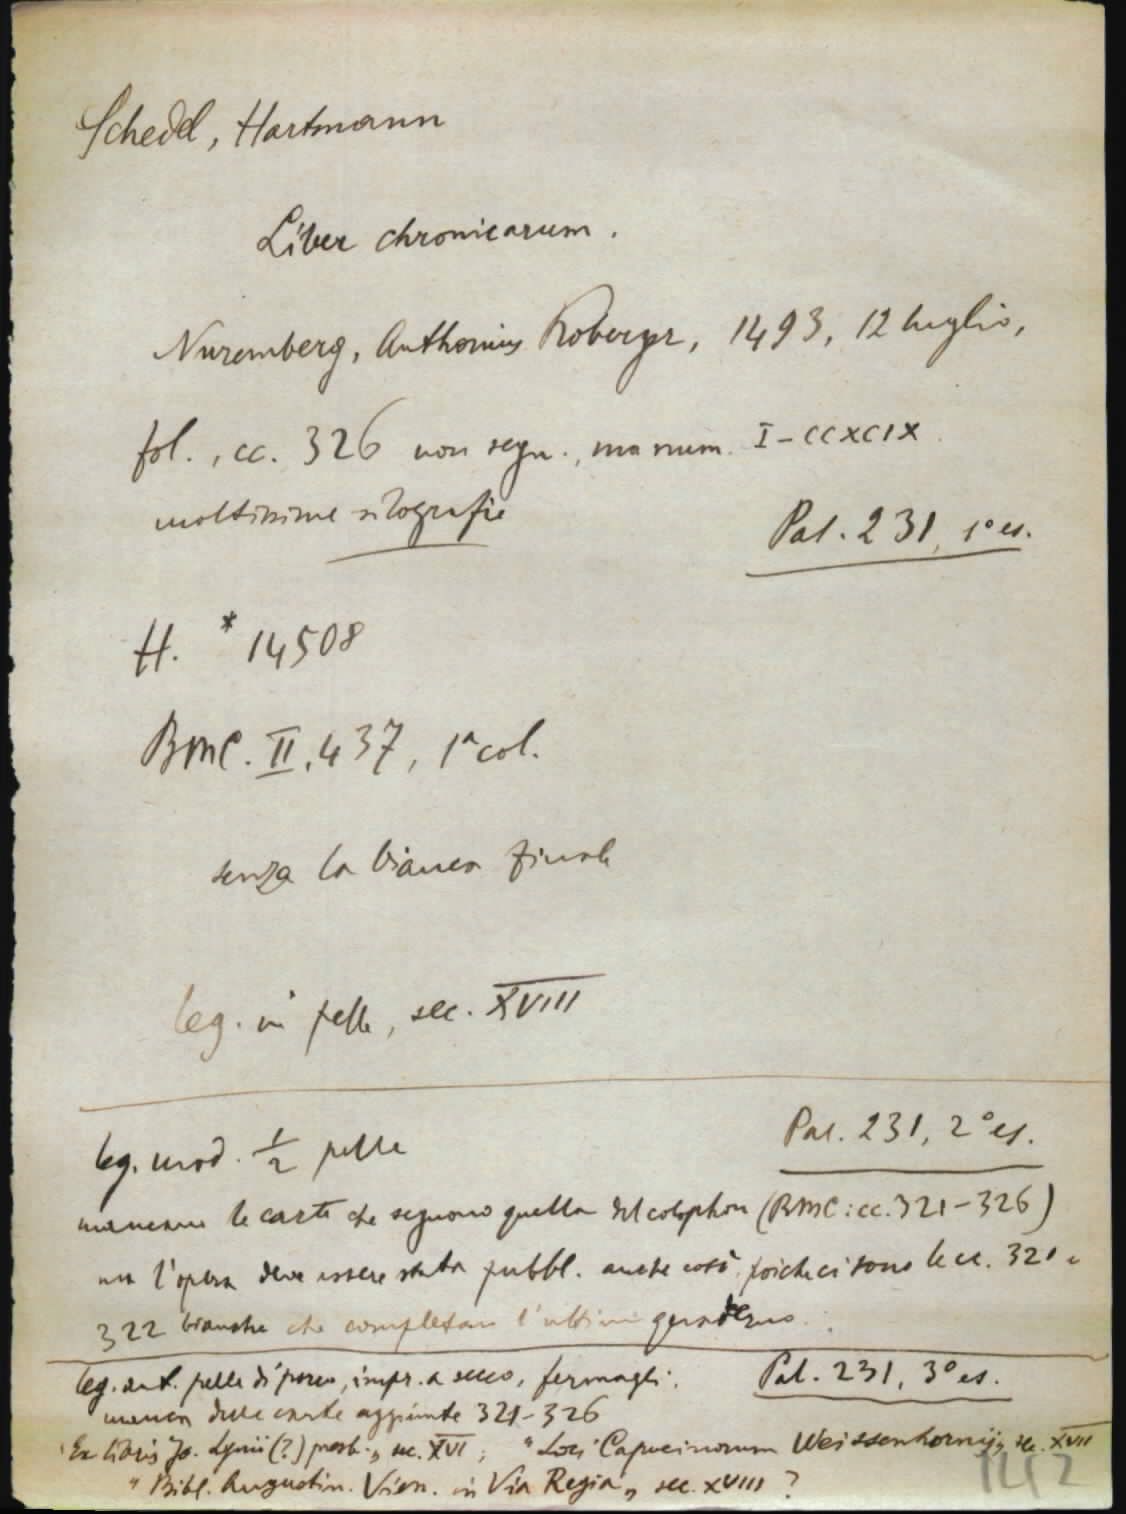 Schedel, Hartmann
Liber chronicarum.
Nuremberg, Anthonius Koberger, 1493, 12 luglio,
fol., cc. 326 non segn., ma num. I-CCXCIX
moltissime silografie
Pal. 231, 1° es.
H. *14508
BMC. II, 437, 1ª col.
senza la bianca finale
leg. in pelle, sec. XVIII
Pal. 231, 2° es.
leg. mod. 1/2 pelle
mancano le carte che seguono quella del colophon (BMC: cc. 321-326)
ma l'opera deve essere stata pubbl. anche così, poiché ci sono le cc. 321 e
322 bianche che completano l'ultimo quaderno.
leg. ant. pelle di porco, impr. a secco, fermagli. Pal. 231, 3° es.
manca delle carte aggiunte 321-326
"Ex libris Jo. Lynii (?) presb.", sec. XVI; "Loci Capucinorum Weissenhornij", sec. XVII
"Bibl. Augustin. Vien. in Via Regia", sec. XVIII ?